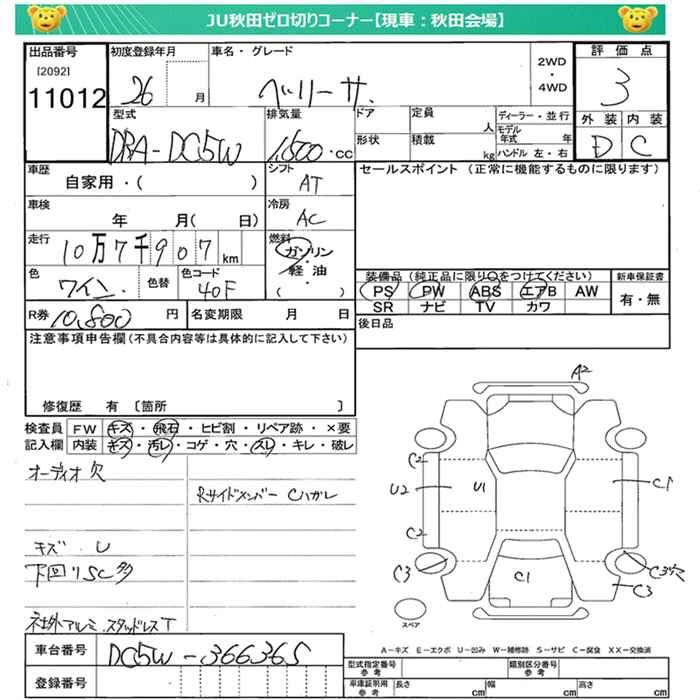 JU秋田ゼロ切りコーナー【現車：秋田会場】
出品番号 初度登録年月 車名・グレード 評価点
[2092]
11012 26 月 ベリーサ 2WD・4WD 3
型式 排気量 ドア 定員 人 ディーラー・並行 外装 内装
DBA-DC5W 1,500・cc 形状 積載 kg モデル年式 年 ハンドル 左・右 D C
車歴 シフト セールスポイント (正常に機能するものに限ります)
自家用・( ) AT
車検 冷房
年 月( 日) AC
走行 燃料
10万7千907km ガソリン・軽油 ( )
色 ワイン 色替 色コード 40F
装備品 (純正品に限り○をつけてください) 新車保証書
PS PW ABS エアB AW 有・無
SR ナビ TV カワ
R券 10,800 円 名変期限 月 日 後日品
注意事項申告欄 (不具合内容等は具体的に記入して下さい)
修復歴 有 〔箇所 〕
検査員 FW キズ・飛石・ヒビ割・リペア跡・×要
記入欄 内装 キズ・汚レ・コゲ・穴・スレ・キレ・破レ
オーディオ欠
Rサイドメンバー Cハガレ
キズ・U
下回りSC多
社外アルミ、スタッドレスT
車台番号 DC5W-366365
登録番号
A2
C2
U2 U1 C1
C2
C3 C1 C3穴
C3
スペア
A－キズ E－エクボ U－凹み W－補修跡 S－サビ C－腐食 XX－交換済
型式指定番号 参考 類別区分番号 参考
車庫証明用 参考 長さ cm 幅 cm 高さ cm